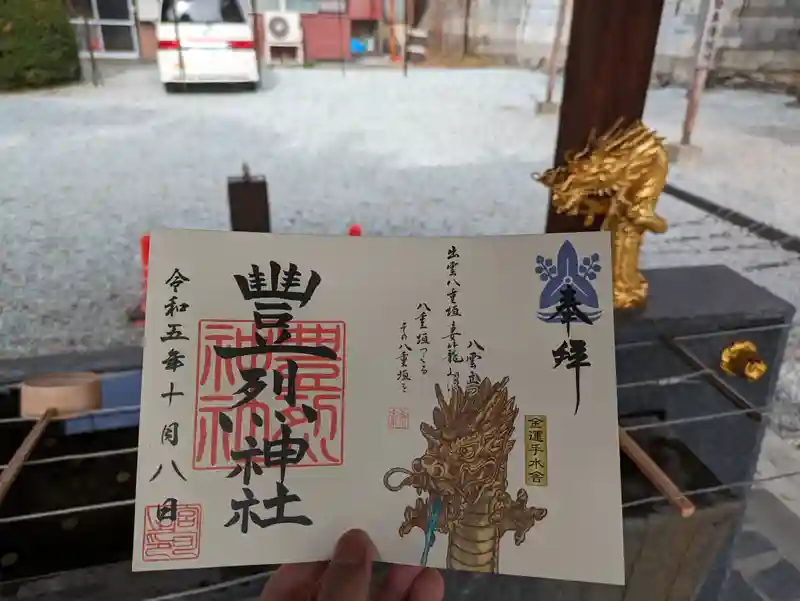 奉拝
出雲八重垣 妻籠み
八雲立つ
八重垣つくる
その八重垣を
金運手水舎
豊烈神社
豊烈神社
令和五年十月八日